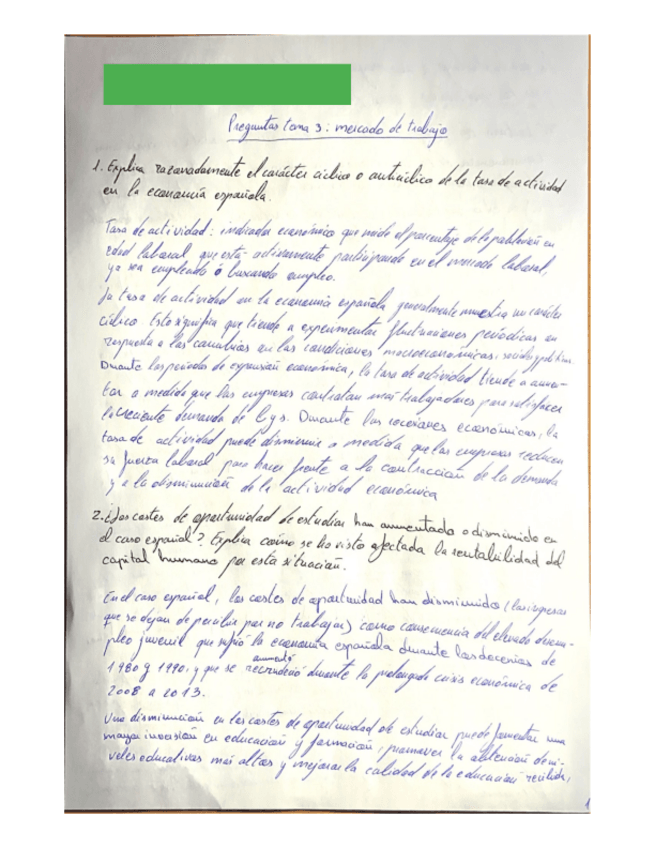 Preguntas tema 3: mercado de trabajo
1. Explica razonadamente el carácter cíclico o anticíclico de la tasa de actividad
en la economía española.
Tasa de actividad: indicador económico que mide el porcentaje de la población en
edad laboral que está activamente participando en el mercado laboral,
ya sea empleado o buscando empleo.
La tasa de actividad en la economía española generalmente muestra un carácter
cíclico. Esto significa que tiende a experimentar fluctuaciones periódicas en
respuesta a los cambios en las condiciones macroeconómicas, sociales y políticas.
Durante los períodos de expansión económica, la tasa de actividad tiende a aumen-
tar a medida que las empresas contratan más trabajadores para satisfacer
la creciente demanda de b y s. Durante las recesiones económicas, la
tasa de actividad puede disminuir a medida que las empresas reducen
su fuerza laboral para hacer frente a la contracción de la demanda
y a la disminución de la actividad económica
2. ¿Los costes de oportunidad de estudiar han aumentado o disminuido en
el caso español? Explica cómo se ha visto afectada la rentabilidad del
capital humano por esta situación.
En el caso español, los costes de oportunidad han disminuido (los ingresos
que se dejan de percibir por no trabajar) como consecuencia del elevado desem-
pleo juvenil que sufrió la economía española durante las decenias de
aumentó
1980 y 1990, y que se recrudeció durante la prolongada crisis económica de
2008 a 2013.
Una disminución en los costes de oportunidad de estudiar puede fomentar una
mayor inversión en educación y formación, promover la obtención de ni-
veles educativos más altos y mejorar la calidad de la educación recibida,
1